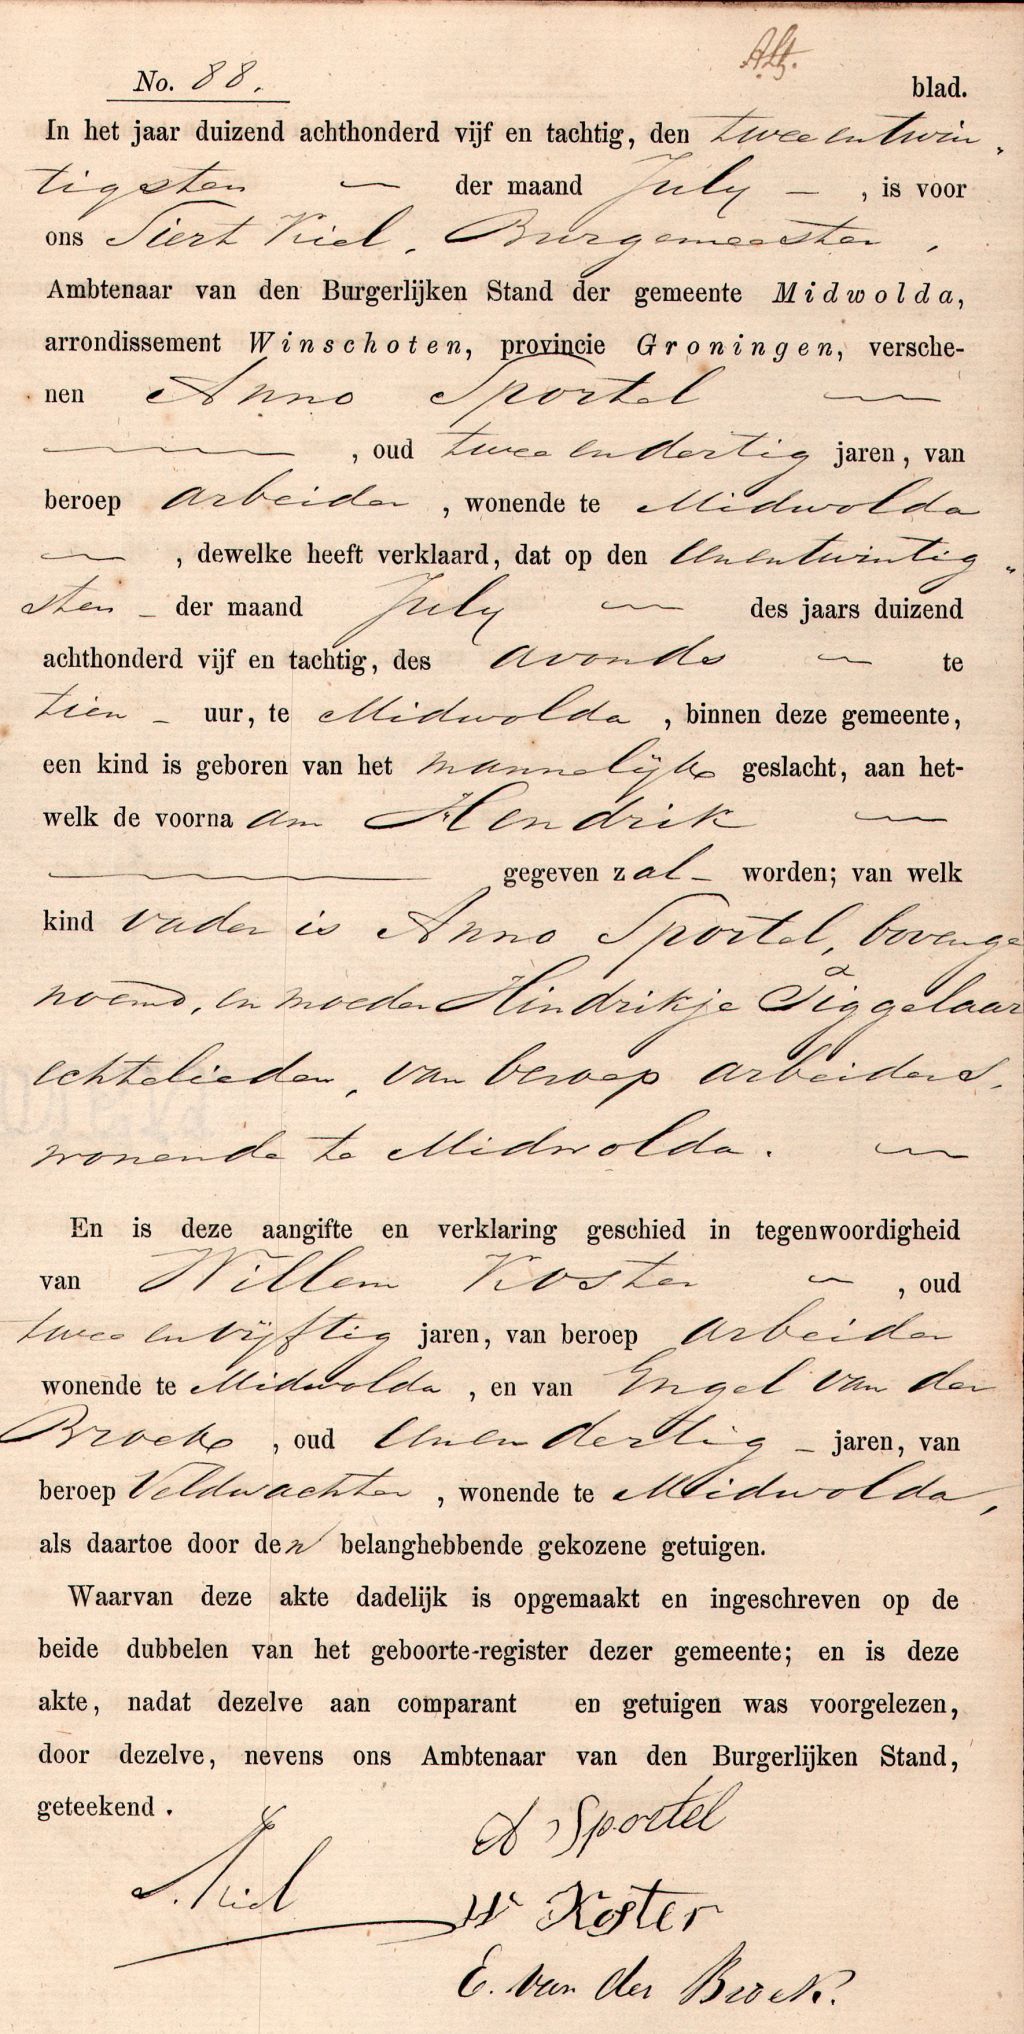 No. 88.
blad.
In het jaar duizend achthonderd vijf en tachtig, den tweeentwin-
tigsten — der maand July —, is voor
ons Siert Kiel, Burgemeester,
Ambtenaar van den Burgerlijken Stand der gemeente Midwolda,
arrondissement Winschoten, provincie Groningen, versche-
nen Anno Sportel —
—, oud twee en dertig jaren, van
beroep arbeider, wonende te Midwolda
—, dewelke heeft verklaard, dat op den eenentwintig-
sten — der maand July — des jaars duizend
achthonderd vijf en tachtig, des avonds — te
tien — uur, te Midwolda, binnen deze gemeente,
een kind is geboren van het mannelijke geslacht, aan het-
welk de voornaam Hendrik —
— gegeven zal — worden; van welk
kind vader is Anno Sportel, bovenge
noemd, en moeder Hindrikje Tiggelaar
echtelieden, van beroep arbeiders,
wonende te Midwolda. —
En is deze aangifte en verklaring geschied in tegenwoordigheid
van Willem Koster —, oud
twee en vijftig jaren, van beroep arbeider
wonende te Midwolda, en van Engel van der
Broek, oud eenen dertig — jaren, van
beroep Veldwachter, wonende te Midwolda,
als daartoe door den belanghebbende gekozene getuigen.
Waarvan deze akte dadelijk is opgemaakt en ingeschreven op de
beide dubbelen van het geboorte-register dezer gemeente; en is deze
akte, nadat dezelve aan comparant en getuigen was voorgelezen,
door dezelve, nevens ons Ambtenaar van den Burgerlijken Stand,
geteekend.
A Sportel
S. Kiel
W Koster
E. van der Broek.